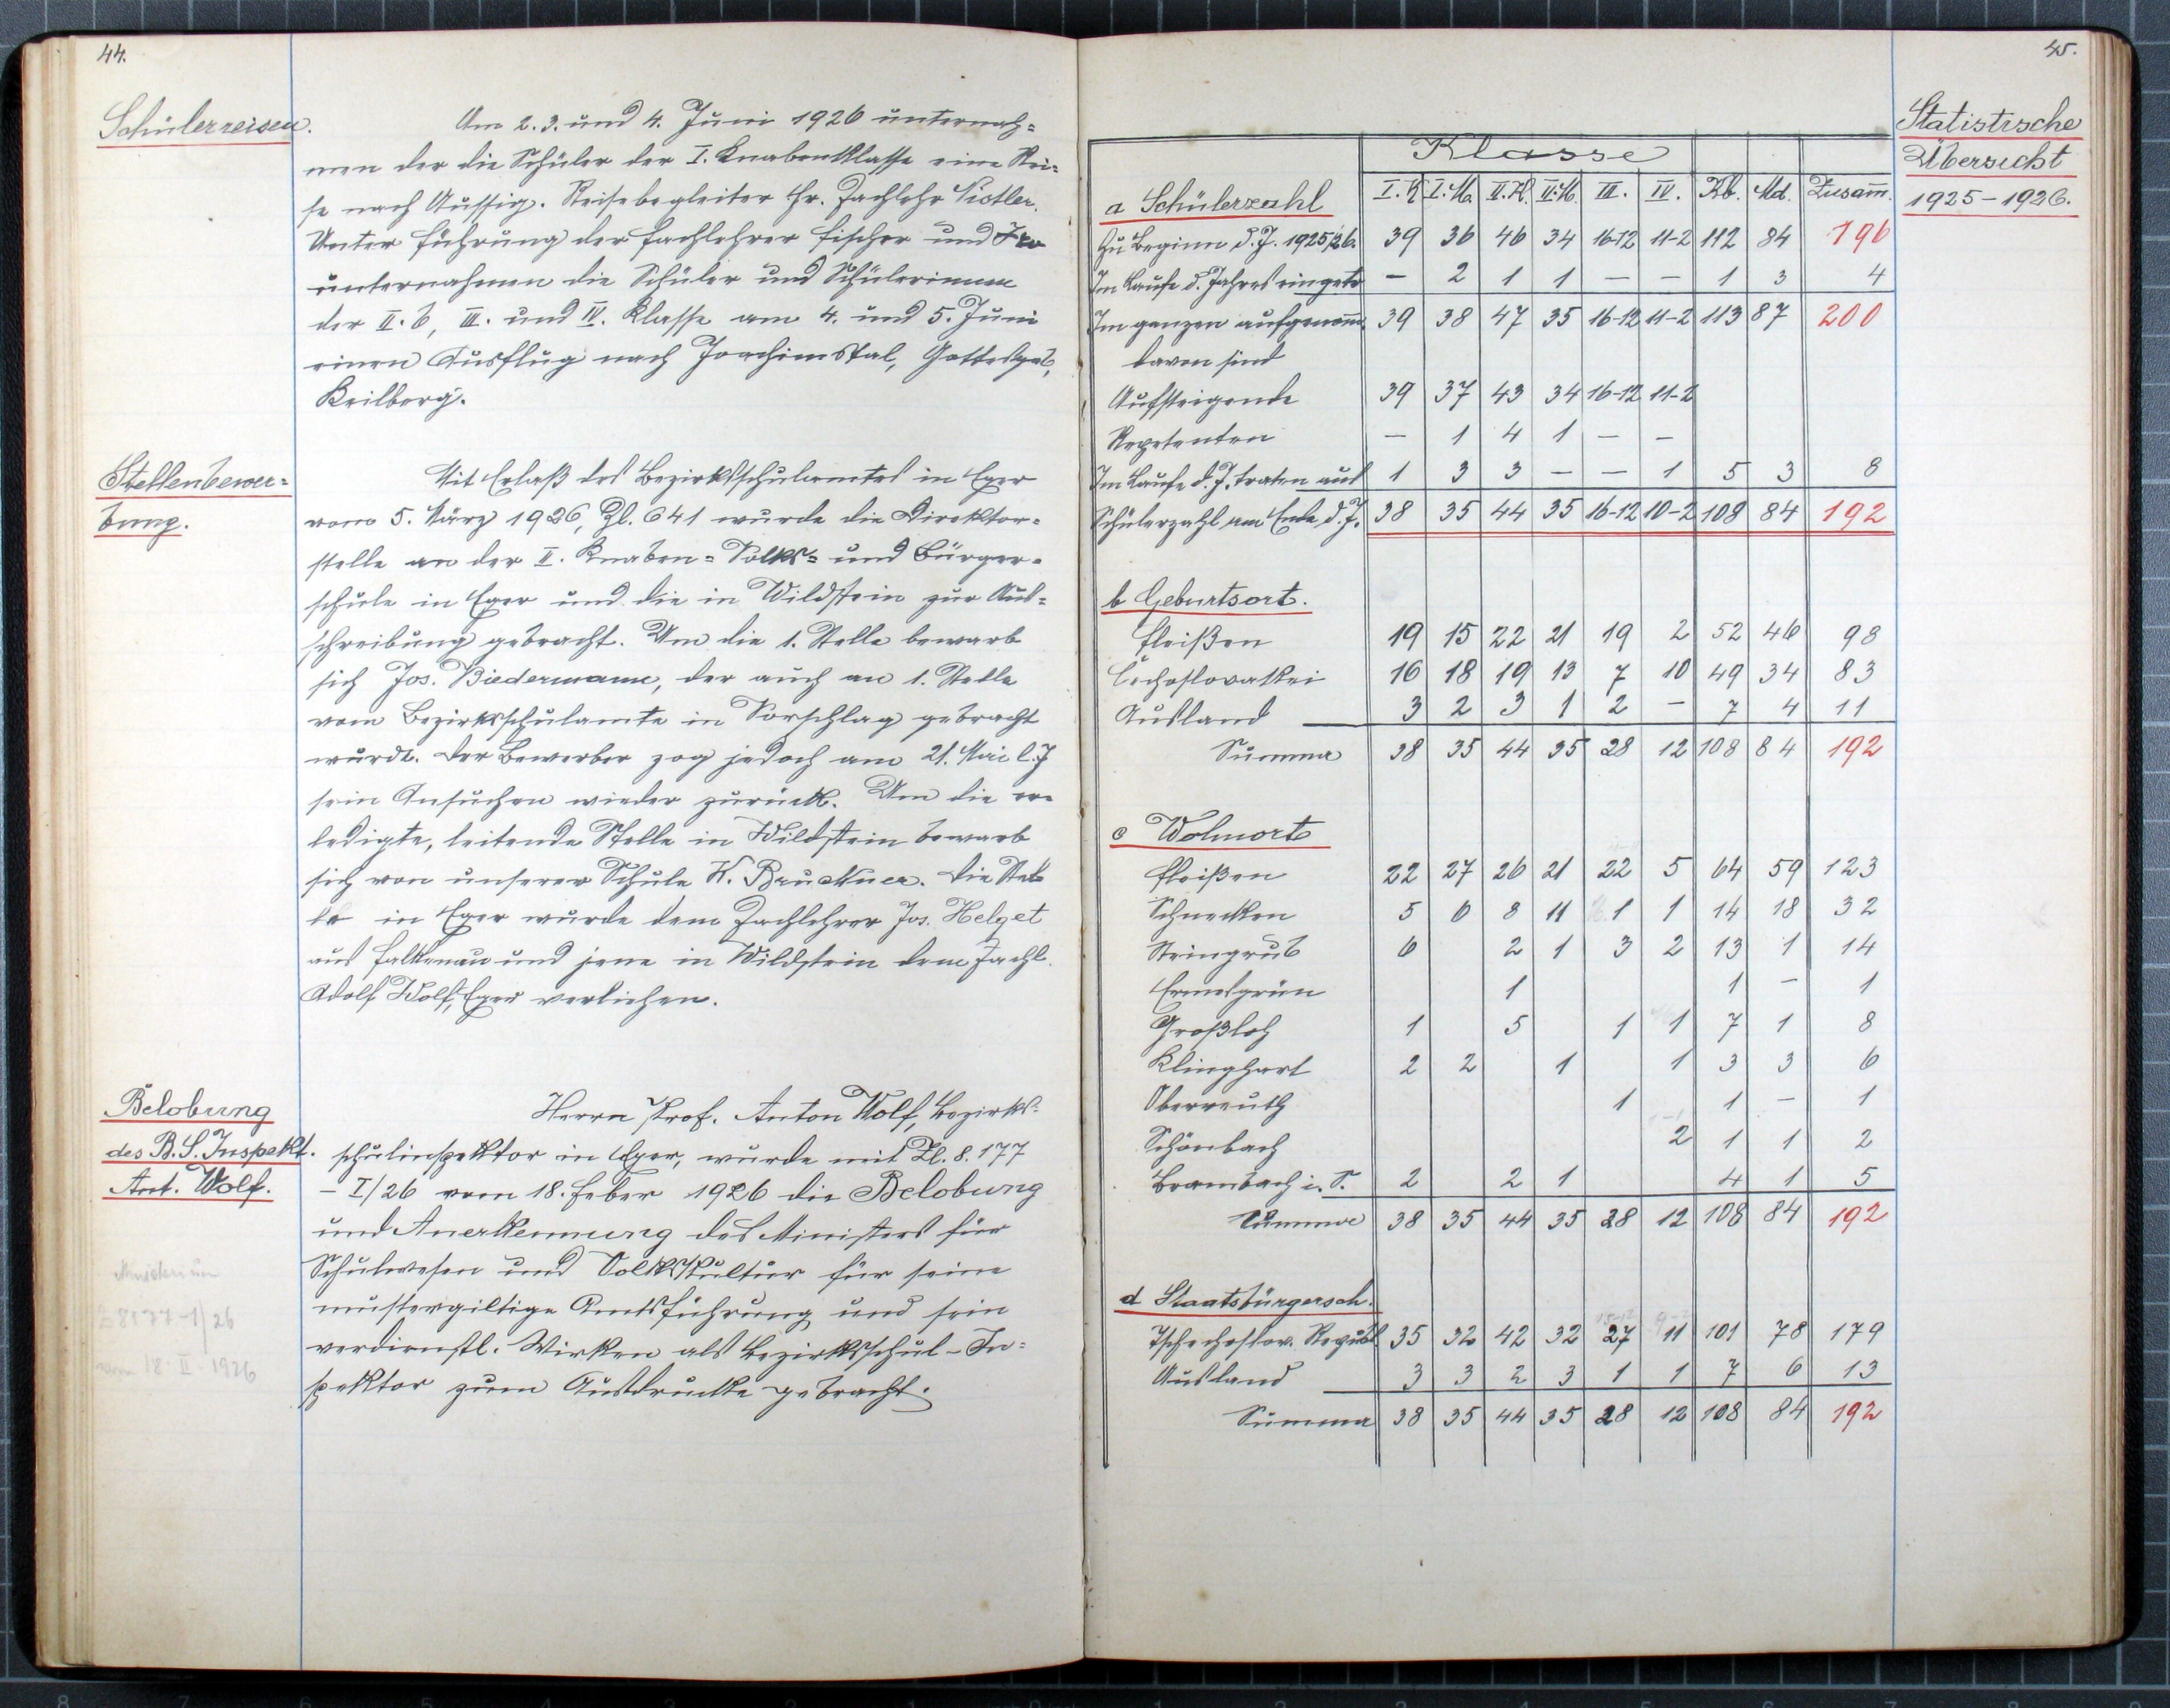 44.
Schülerreisen.
Am 2. 3. und 4. Juni 1926 unternah=
men der die Schüler der I. Knabenklasse eine Rei=
se nach Aussig. Reisebegleiter Hr. Fachlehr Pistler.
Unter Führung der Fachlehrer Fischer und
unternahmen die Schüler und Schülerinnen
der II. b, III. und IV. Klasse am 4. und 5. Juni
einen Ausflug nach Joachimstal, Gottesgab,
Keilberg.
Stellenbewer=
bung.
Mit Erlaß des Bezirksschulamtes in Eger
vom 5. März 1926, Zl. 641 wurde die Direktor=
stelle an der II. Knaben= Volks= und Bürger=
schule in Eger und die in Wildstein zur Aus=
schreibung gebracht. Um die 1. Stelle bewarb
sich Jos. Biedermann, der auch an 1. Stelle
vom Bezirksschulamte in Vorschlag gebracht
wurde. Der Bewerber zog jedoch am 21. Mai l. J
sein Ansuchen wieder zurück. Um die er=
ledigte, leitende Stelle in Wildstein bewarb
sich von unserer Schule K. Bruckner. Die Stel
le in Eger wurde dem Fachlehrer Jos. Helget
aus Falkenau und jene in Wildstein dem Fachl.
Adolf Wolf, Eger verliehen.
Belobung
des B. S. Inspekt.
Ant. Wolf.
Herrn Prof. Anton Wolf, Bezirks=
schulinspektor in Eger, wurde mit Zl. 8.177
– I/26 vom 18. Feber 1926 die Belobung
und Anerkennung des Ministers für
Schulwesen und Volkskultur für seine
mustergiltige Amtsführung und sein
verdienstl. Wirken als Bezirksschul-In=
spektor zum Ausdrucke gebracht.
Ministerium
Z 8177-I/26
vom 18. II 1926
45.
Statistische
Übersicht
1925–1926.
Klasse
a Schülerzahl I. K I. M. II. K. II. M. III. IV. Kb. Md. Zusam̄.
Zu Beginn d. J. 1925/26. 39 36 46 34 16-12 11-2 112 84 196
Im Laufe d. Jahres eingetr – 2 1 1 – – 1 3 4
Im ganzen aufgenom̄. 39 38 47 35 16-12 11-2 113 87 200
davon sind
Aufsteigende 39 37 43 34 16-12 11-2
Repetenten – 1 4 1 – –
Im Laufe d. J. traten aus 1 3 3 – – 1 5 3 8
Schülerzahl am Ende d. J. 38 35 44 35 16-12 10-2 108 84 192
b Geburtsort.
Fleißen 19 15 22 21 19 2 52 46 98
Čechoslovakei 16 18 19 13 7 10 49 34 83
Ausland 3 2 3 1 2 – 7 4 11
Summa 38 35 44 35 28 12 108 84 192
c Wohnort
Fleißen 22 27 26 21 22 5 64 59 123
Schnecken 5 6 8 11 1 1 14 18 32
Steingrub 6 2 1 3 2 13 1 14
Ermesgrün 1 1 – 1
Großloh 1 5 1 1 7 1 8
Klinghart 2 2 1 1 3 3 6
Oberreuth 1 1 – 1
Schönbach 2 1 1 2
Brambach i. S. 2 2 1 4 1 5
Summe 38 35 44 35 28 12 108 84 192
d Staatsbürgersch.
Tschechoslov. Republ 35 32 42 32 27 11 101 78 179
Ausland 3 3 2 3 1 1 7 6 13
Summa 38 35 44 35 28 12 108 84 192